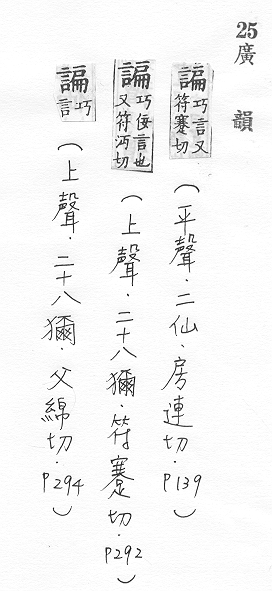 25廣韻
諞巧言又符蹇切（平聲．二仙．房連切．P139）
諞巧佞言也又符沔切（上聲．二十八獮．符蹇切．P292）
諞巧言（上聲．二十八獮．父綿切．P294）